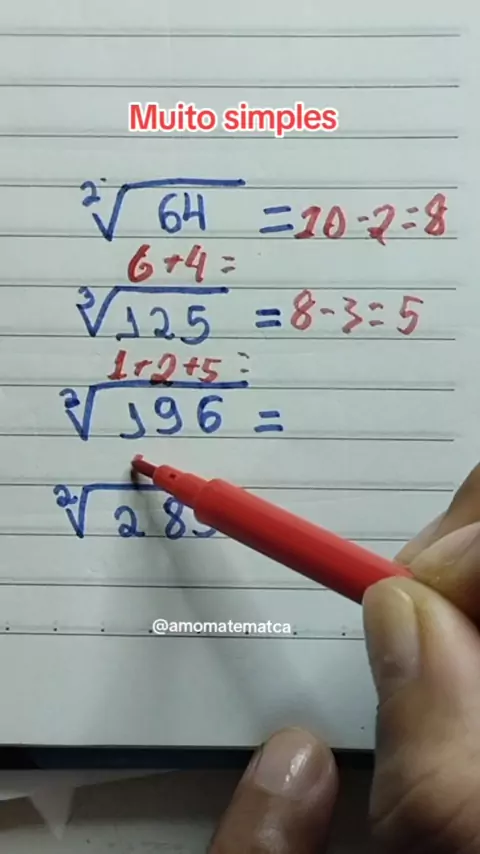 Muito simples
²√64 = 10-2=8
6+4=
³√125 = 8-3=5
1+2+5=
²√196 =
²√28
@amomatematca